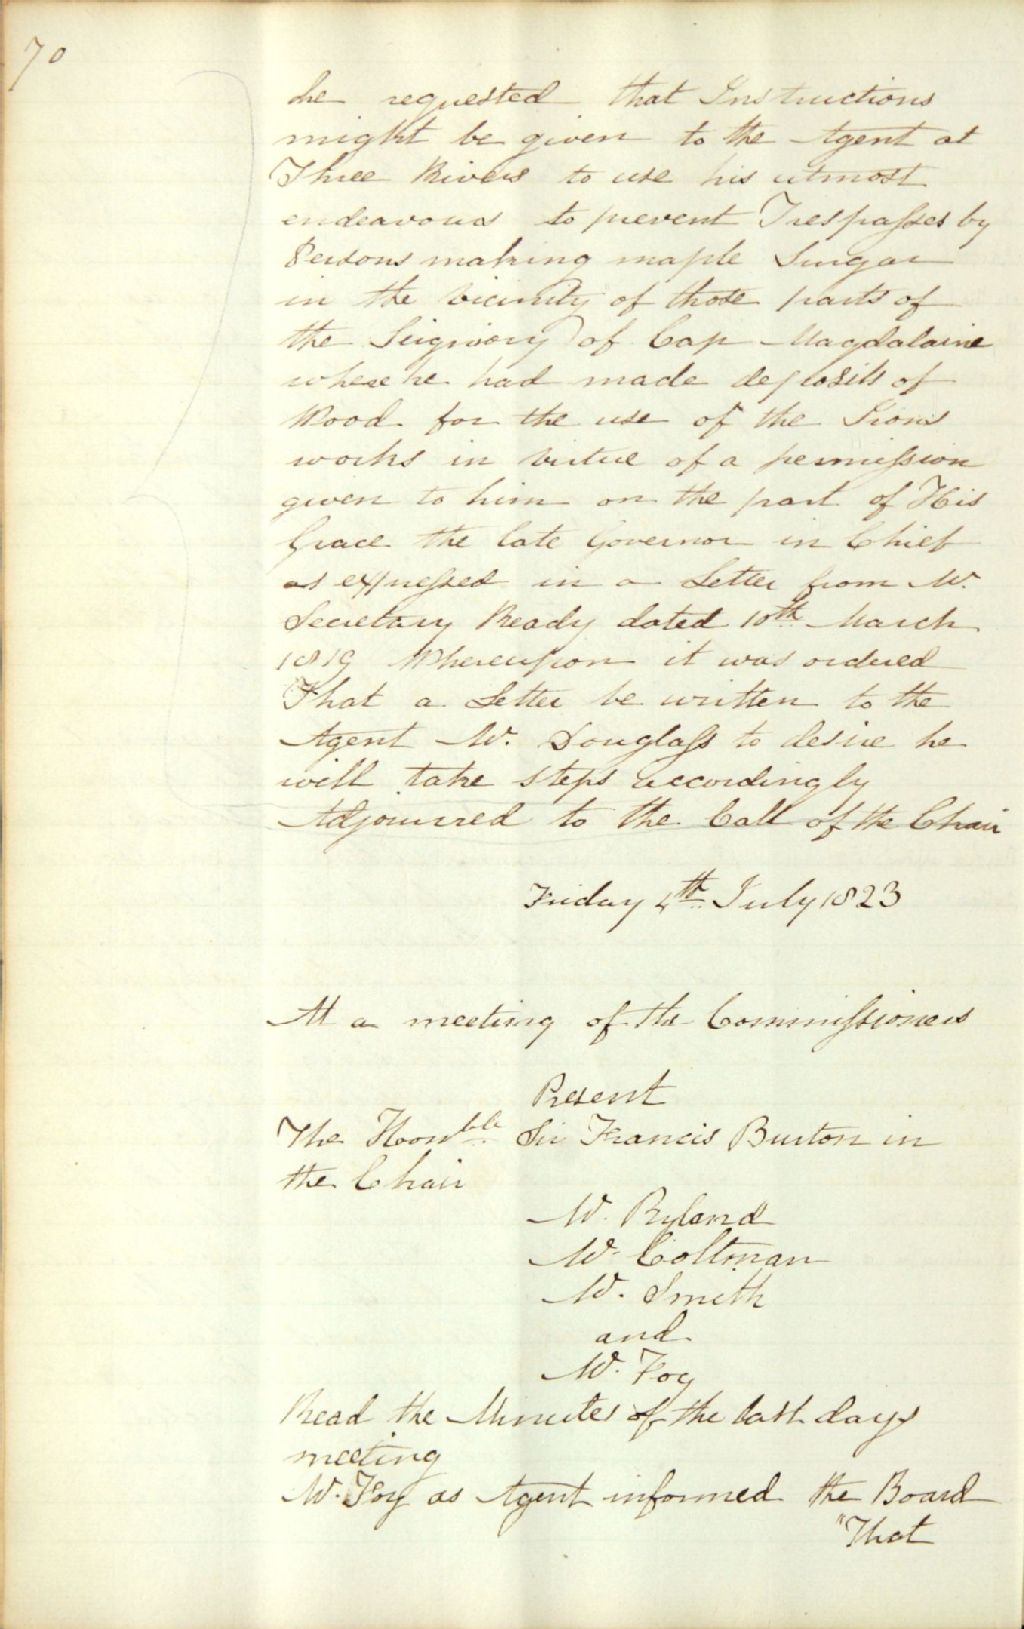 70
he requested that Instructions
might be given to the Agent at
Three Rivers to use his utmost
endeavours to prevent Trespasses by
Persons making maple Sugar
in the vicinity of those parts of
the Seigniory of Cap Magdalaine
where he had made deposits of
Wood for the use of the Irons
works in virtue of a permission
given to him on the part of His
Grace the late Governor in Chief
as expressed in a Letter from Mr.
Secretary Ready dated 10th March
1819 Whereupon it was ordered
That a Letter be written to the
Agent Mr. Douglass to desire he
will take steps accordingly
Adjourned to the Call of the Chair
Friday 4th July 1823
At a meeting of the Commissioners
Present
The Honble Sir Francis Burton in
the Chair
Mr. Ryland
Mr. Coltman
Mr. Smith
and
Mr. Foy
Read the Minutes of the last days
meeting
Mr. Foy as Agent informed the Board
"That